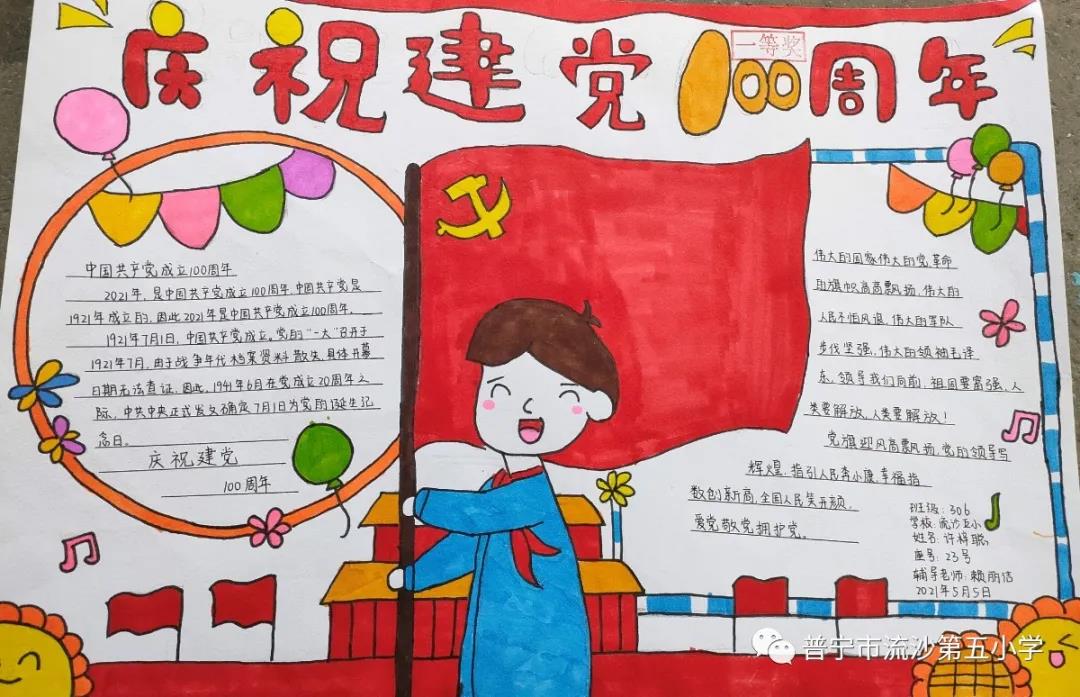 庆祝建党100周年
一等奖
中国共产党成立100周年
2021年,是中国共产党成立100周年,中国共产党是
1921年成立的,因此2021年是中国共产党成立100周年.
1921年7月1日,中国共产党成立。党的"一大"召开于
1921年7月,由于战争年代档案资料散失,具体开幕
日期无法查证,因此,1941年6月在党成立20周年之
际,中共中央正式发文确定7月1日为党的诞生记
念日。
庆祝建党
100周年
伟大的国家伟大的党革命
的旗帜高高飘扬,伟大的
人民不怕风浪,伟大的军队
步伐坚强,伟大的领袖毛泽
东,领导我们向前,祖国要富强,人
类要解放,人类要解放!
党旗迎风高飘扬,党的领导写
辉煌,指引人民奔小康,幸福指
数创新高,全国人民笑开颜,
爱党敬党拥护党。
班级:306
学校:流沙五小
姓名:许梓聪
座号:23号
辅导老师:赖丽洁
2021年5月5日
普宁市流沙第五小学